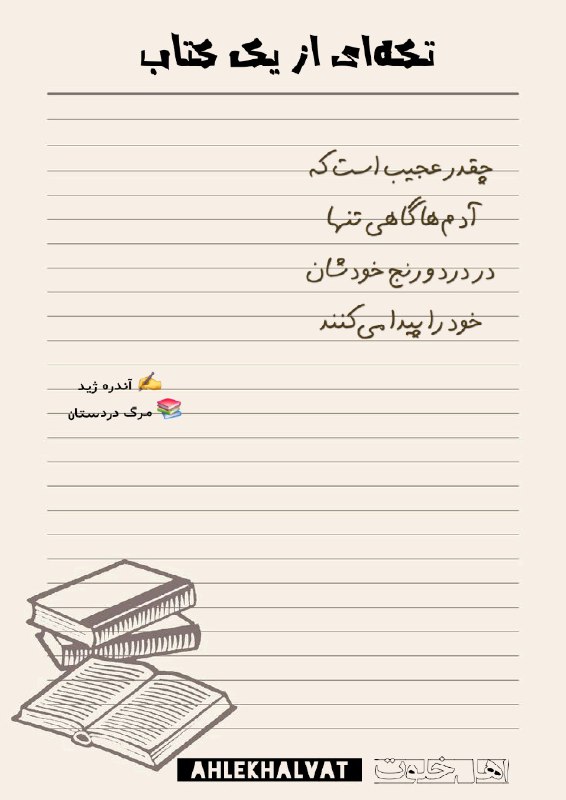 تکه‌ای از یک کتاب
چقدر عجیب است که
آدم‌ها گاهی تنها
در درد و رنج خودشان
خود را پیدا می‌کنند
✍️ آندره ژید
📚 مرگ دردستان
AHLEKHALVAT
اهل خلوت